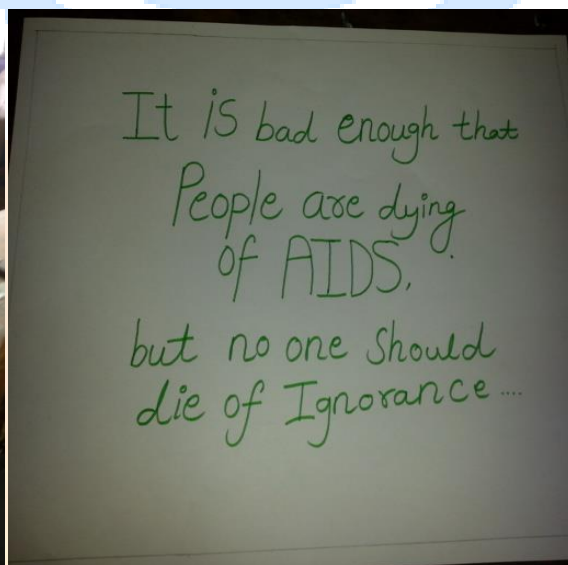 It is bad enough that
People are dying
of AIDS.
but no one Should
die of Ignorance....